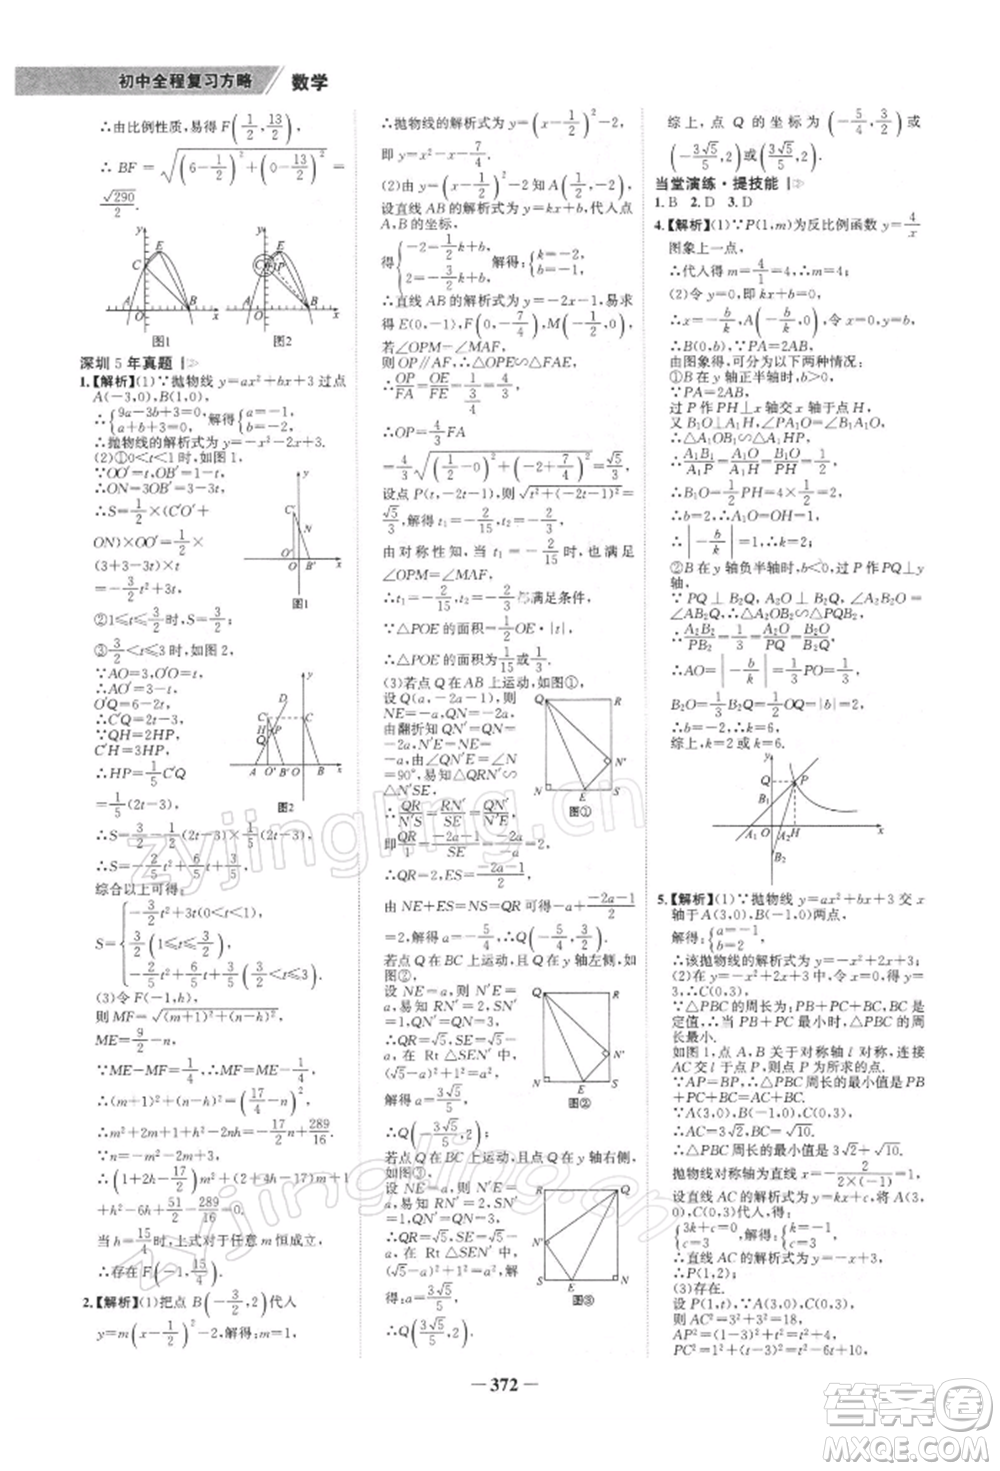 初中全程复习方略 数学
∴由比例性质,易得 F(1/2, 13/2),
∴ BF = √((6-1/2)²+(0-13/2)²) =
√290/2.
图1 图2
深圳 5 年真题
1.【解析】(1)∵抛物线 y=ax²+bx+3 过点
A(-3,0),B(1,0),
∴{9a-3b+3=0 a+b+3=0,得{a=-1, b=-2.
∴抛物线的解析式为 y=-x²-2x+3.
(2)①0<t<1 时,如图 1,
∵OO′=t,
∴ON=3OB′=3-3t,
∴S=1/2×(O′C′+
ON)×OO′=1/2×
(3+3-3t)×t
=-3/2t²+3t.
图1
②1≤t≤3/2时,S=3/2;
③3/2<t≤3 时,如图 2,
∵AO=3,O′O=t,
∴AO′=3-t,
O′Q=6-2t,
∴C′Q=2t-3,
∵QH=2HP,
C′H=3HP,
∴HP=1/5C′Q
=1/5(2t-3),
图2
∴S=3/2-1/2(2t-3)×1/5(2t-3)
∴S=-2/5t²+6/5t+3/5(3/2<t≤3).
综合以上可得:
S={-3/2t²+3t(0<t<1)
3/2(1≤t≤3/2)
-2/5t²+6/5t+3/5(3/2<t≤3)
(3)令 F(-1,h),
则 MF=√((m+1)²+(n-h)²),
ME=17/4-n,
∵ME-MF=1/4,
∴(m+1)²+(n-h)²=(17/4-n)²
∴m²+2m+1+h²-2nh=-17/2n+289/16.
∵n=-m²-2m+3,
∴(1+2h-17/2)m²+(2+4h-17)m+1
+h²-6h+51/2-289/16=0.
当 h=15/4时,上式对于任意 m 恒成立,
∴存在 F(-1,15/4).
2.【解析】(1)把点 B(-3/2,2)代入
y=m(x-1/2)²-2,解得:m=1,
∴抛物线的解析式为 y=(x-1/2)²-2,
即 y=x²-x-7/4.
(2)由 y=(x-1/2)²-2 知 A(1/2,-2),
设直线 AB 的解析式为 y=kx+b,代入点
A,B 的坐标,
得{-2=1/2k+b, 2=-3/2k+b, 解得:{k=-2, b=-1,
∴直线 AB 的解析式为 y=-2x-1,易求
得 E(0,-1),F(0,-7/4),M(-1/2,0),
若∠OPM=∠MAF,
则 OP∥AF,∴△OPE∽△FAE,
∴OP/FA=OE/FE=1/(3/4)=4/3,
∴OP=4/3FA
=4/3√((1/2-0)²+(-2+7/4)²)=√5/3,
设点 P(t,-2t-1),则√(t²+(-2t-1)²)=
√5/3,解得 t₁=-2/15,t₂=-2/3,
由对称性知,当 t₁=-2/15时,也满足
∠OPM=∠MAF,
∴t₁=-2/15,t₂=-2/3都满足条件,
∵△POE 的面积=1/2OE·|t|,
∴△POE 的面积为1/15或1/3.
(3)若点 Q 在 AB 上运动,如图①,
设 Q(a,-2a-1),则
NE=-a,QN=-2a,
由翻折知 QN′=QN=
-2a,N′E=NE=
-a,由∠QN′E=∠N
=90°,易知△QRN′∽
△N′SE,
图①
∴QR/N′S=RN′/SE=QN′/EN′,
即QR/1=-2a-1/SE=-2a/-a=2,
∴QR=2,SE=-2a-1/2,
由 NE+ES=NS=QR 可得-a+-2a-1/2
=2,解得 a=-5/4,∴Q(-5/4,3/2),
若点 Q 在 BC 上运动,且 Q 在 y 轴左侧,如
图②,
设 NE=-a,则 N′E=-
a,易知 RN′=2,SN′=
1,QN′=QN=3,
∴QR=√5,SE=√5-
a,在 Rt △SEN′中,
(√5-a)²+1²=a²,
解得 a=3√5/5,
图②
∴Q(-3√5/5,2);
若点 Q 在 BC 上运动,且点 Q 在 y 轴右侧,
如图③,
设 NE=a,则 N′E=a,
易知 RN′=2,SN′=1,
QN′=QN=3,
∴QR=√5,SE=√5-
a,在 Rt △SEN′中,
(√5-a)²+1²=a²,
解得:a=3√5/5,
图③
∴Q(3√5/5,2).
综上,点 Q 的坐标为(-5/4,3/2)或
(-3√5/5,2)或(3√5/5,2).
当堂演练·提技能
1.B 2.D 3.D
4.【解析】(1)∵P(1,m)为反比例函数 y=4/x
图象上一点,
∴代入得 m=4/1=4,∴m=4;
(2)令 y=0,即 kx+b=0,
∴x=-b/k,A(-b/k,0),令 x=0,y=b,
∴B(0,b),∵PA=2AB,
由图象得,可分为以下两种情况:
①B 在 y 轴正半轴时,b>0,
∵PA=2AB,
过 P 作 PH⊥x 轴交 x 轴于点 H,
又 B₁O⊥A₁H,∠PA₁O=∠B₁A₁O,
∴△A₁OB₁∽△A₁HP,
∴A₁B₁/A₁P=A₁O/A₁H=B₁O/PH=1/2,
∴B₁O=1/2PH=4×1/2=2,
∴b=2,∴A₁O=OH=1,
∴|-b/k|=1,∴k=2;
②B 在 y 轴负半轴时,b<0,过 P 作 PQ⊥y
轴,
∵PQ⊥B₂Q,A₂O⊥B₂Q,∠A₂B₂O=∠A₂B₂Q,
∴△A₂OB₂∽△PQB₂,
∴A₂B₂/PB₂=1/3=A₂O/PQ=B₂O/B₂Q,
∴AO=|-b/k|=1/3PQ=1/3,
B₂O=1/3B₂Q=1/2OQ=|b|=2,
∴b=-2,∴k=6,
综上,k=6 或 k=2.
5.【解析】(1)∵抛物线 y=ax²+bx+3 交 x
轴于 A(3,0),B(-1,0)两点,
解得:{a=-1 b=2,
∴该抛物线的解析式为 y=-x²+2x+3;
(2)点 C(0,3),
∵△PBC 的周长为:PB+PC+BC,BC 是
定值,∴当 PB+PC 最小时,△PBC 的周
长最小.
如图 1,点 A,B 关于对称轴 l 对称,连接
AC 交 l 于点 P,则点 P 为所求的点.
∵AP=BP,∴△PBC 周长的最小值是 PB
+PC+BC=AC+BC,
∵A(3,0),B(-1,0),C(0,3),
∴AC=3√2,BC=√10.
∴△PBC 周长的最小值是 3√2+√10.
抛物线对称轴为直线 x=-2/(2×(-1))=1,
设直线 AC 的解析式为 y=kx+c,将 A(3,
0),C(0,3)代入,得:
{3k+c=0 c=3,解得:{k=-1 c=3,
∴直线 AC 的解析式为 y=-x+3,
∴P(1,2);
(3)存在.
设 P(1,t),A(3,0),C(0,3),则
AP²=(1-3)²+t²=t²+4,
PC²=1²+(t-3)²=t²-6t+10,
372
zyjingling.cn
zyjingling.cn
答案圈
MXQE.COM